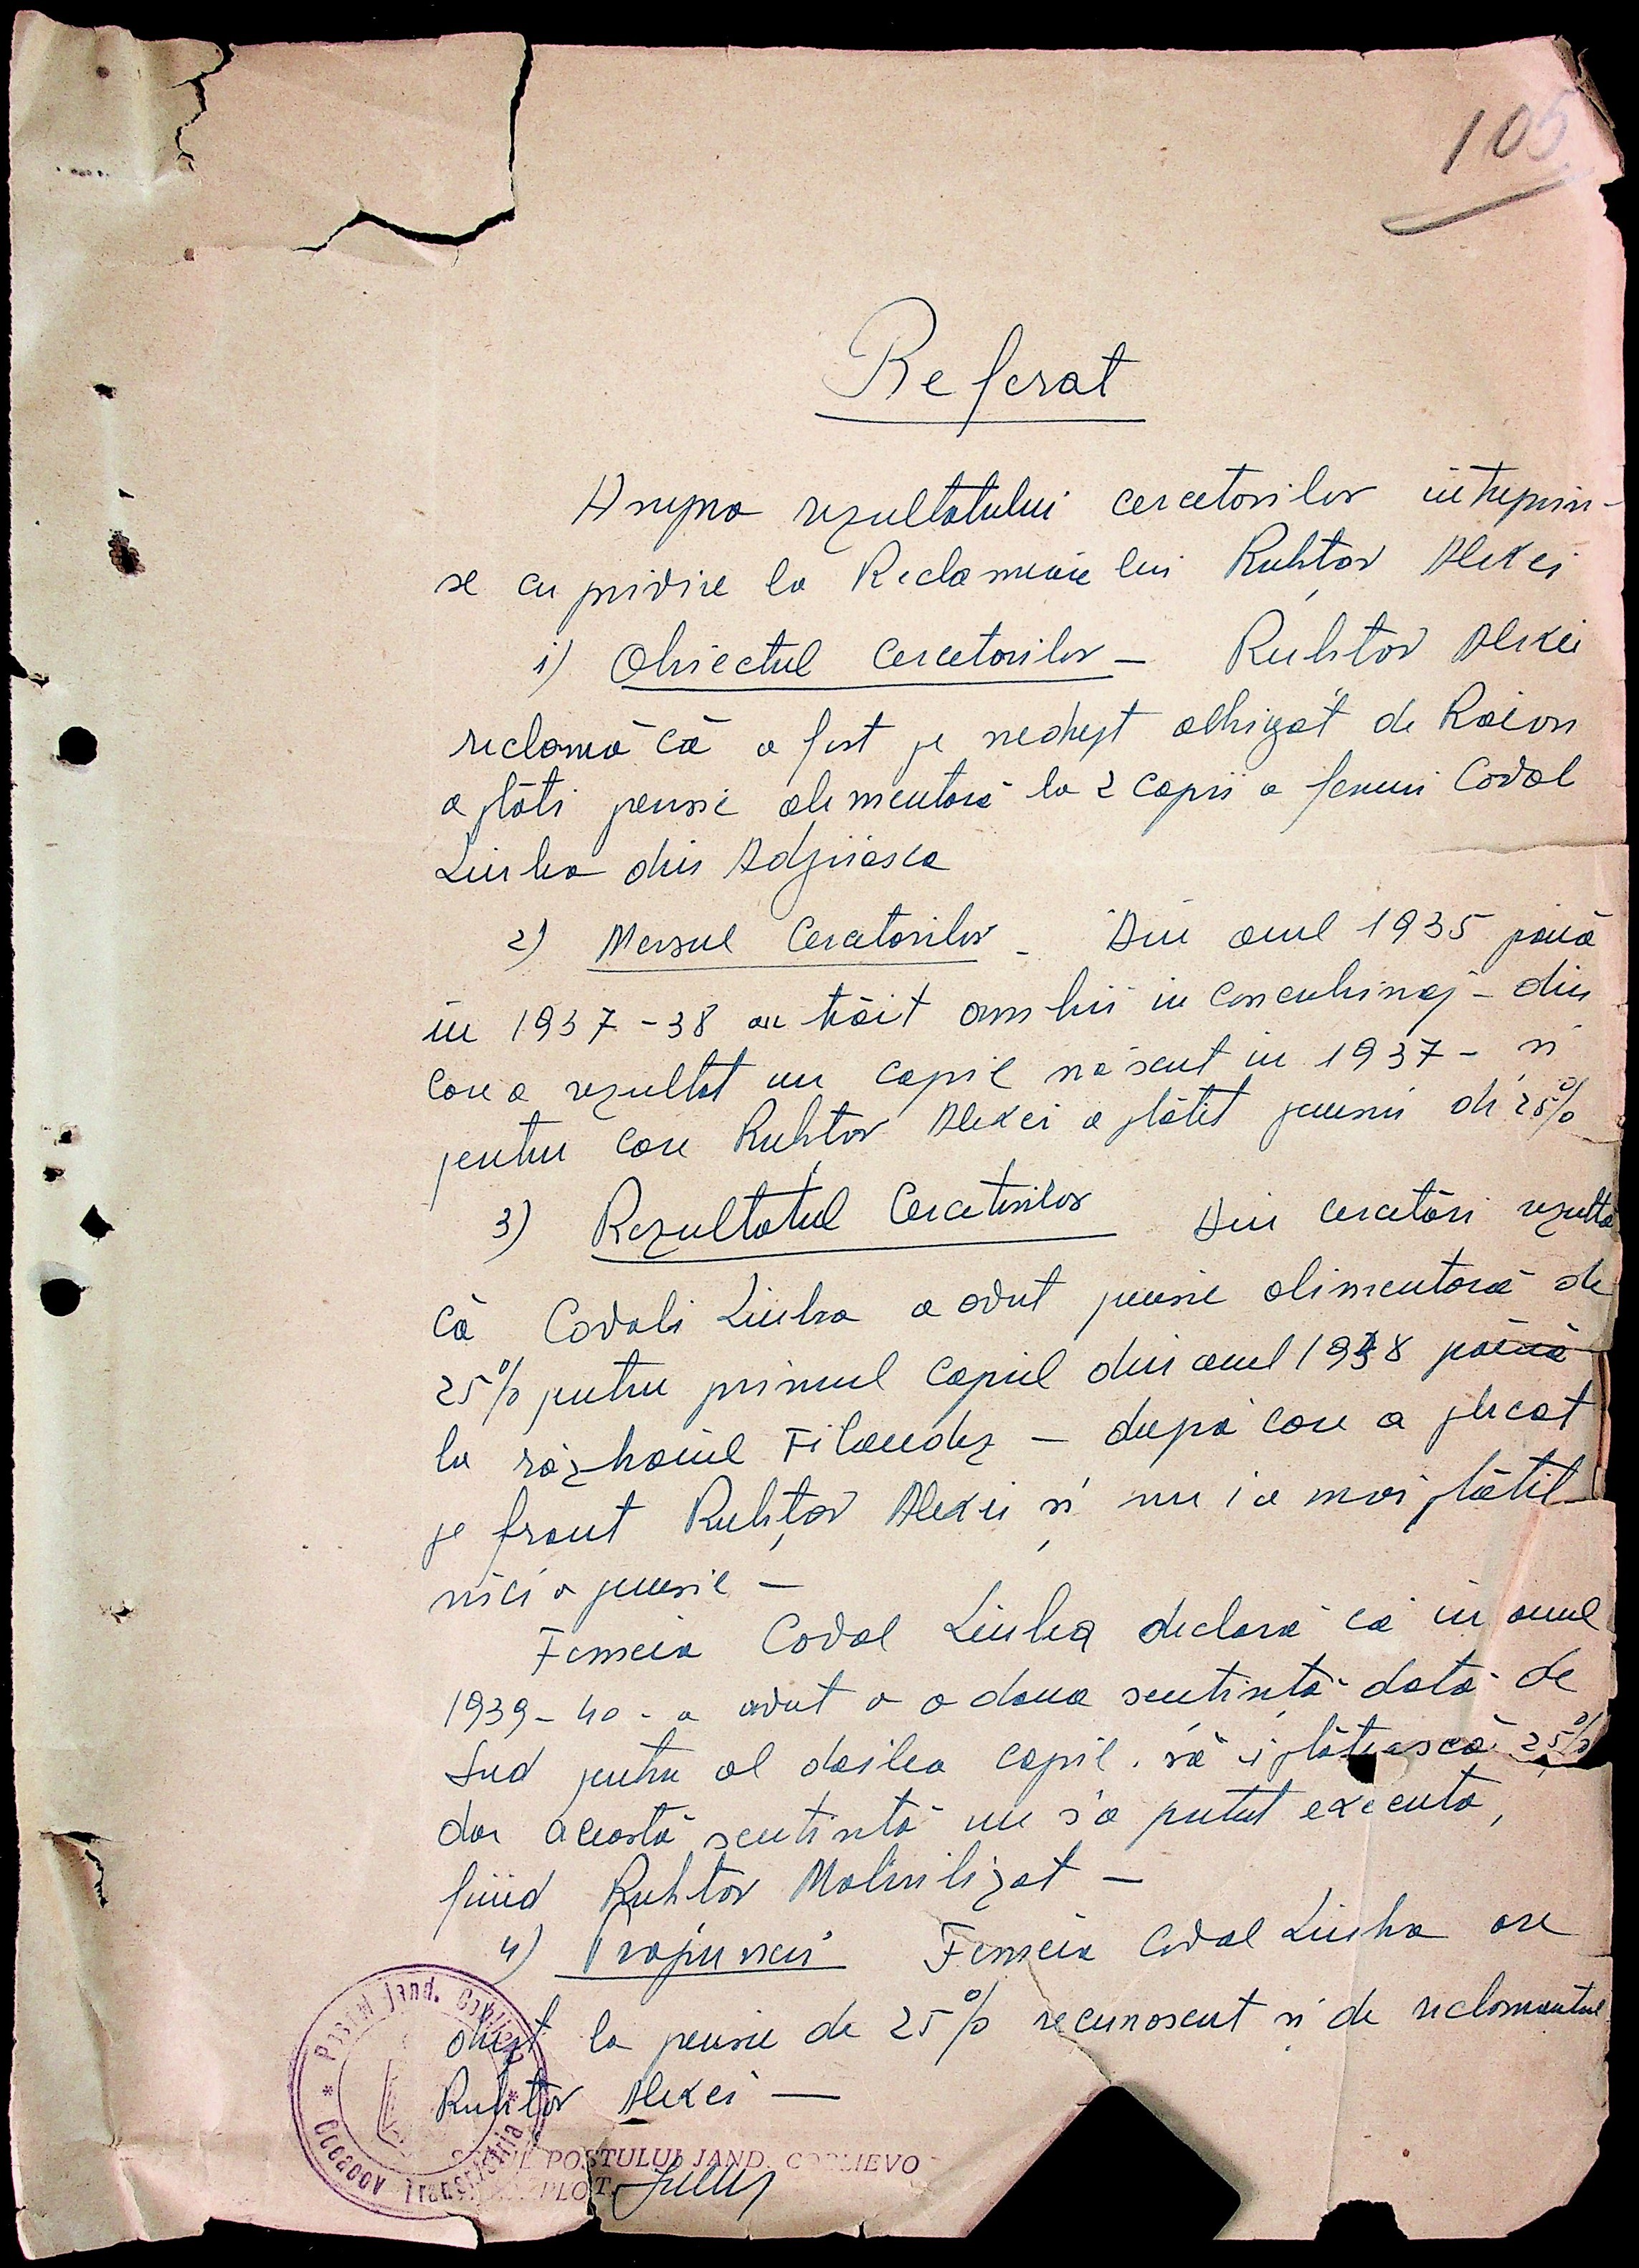 105
Referat
Asupra rezultatului cercetarilor intreprin-
se cu privire la Reclamatie lui Ruhtov Alexei
1) Obiectul Cercetarilor – Ruhtov Alexei
reclamă că a fost pe nedrept obligat de Raion
a plăti pensie alimentară la 2 copii a femeii Coval
Liuba din Adjiiasca
2) Mersul Cercetarilor – Din anul 1935 până
in 1937-38 au trăit ambii in concubinaj – din
care a rezultat un copil născut in 1937 – si
pentru care Ruhtov Alexei a plătit pensii de 25%
3) Rezultatul Cercetarilor Din cercetări rezultă
că Covali Liuba a avut pensie alimentară de
25% pentru primul copil din anul 1938 până
la războiul Filandez – după care a plecat
pe front Ruhtov Alexei si nu i a mai plătit
nici o pensie –
Femeia Coval Liuba declară că in anul
1939-40 – a avut o a doua sentintă dată de
Sud pentru al doilea copil. să-i plătească 25%
dar această sentintă nu s'a putut executa,
fiind Ruhtov Mobilizat –
4) Propuneri Femeia Coval Liuba are
drept la pensie de 25% recunoscut si de reclamantul
Ruhtov Alexei –
POSTULUI JAND. COBLIEVO
PLOT.
* Postul Jand. Coblievo *
Oceacov Transnistria